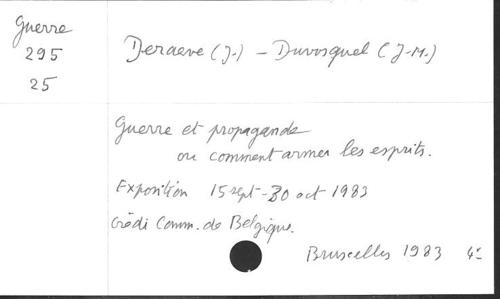 Guerre
295
25
Deraeve (J.) – Duvosquel (J-M.)
Guerre et propagande
ou comment armer les esprits.
Exposition 15 sept-30 oct 1983
Crédi Comm. de Belgique.
Bruxelles 1983 4°